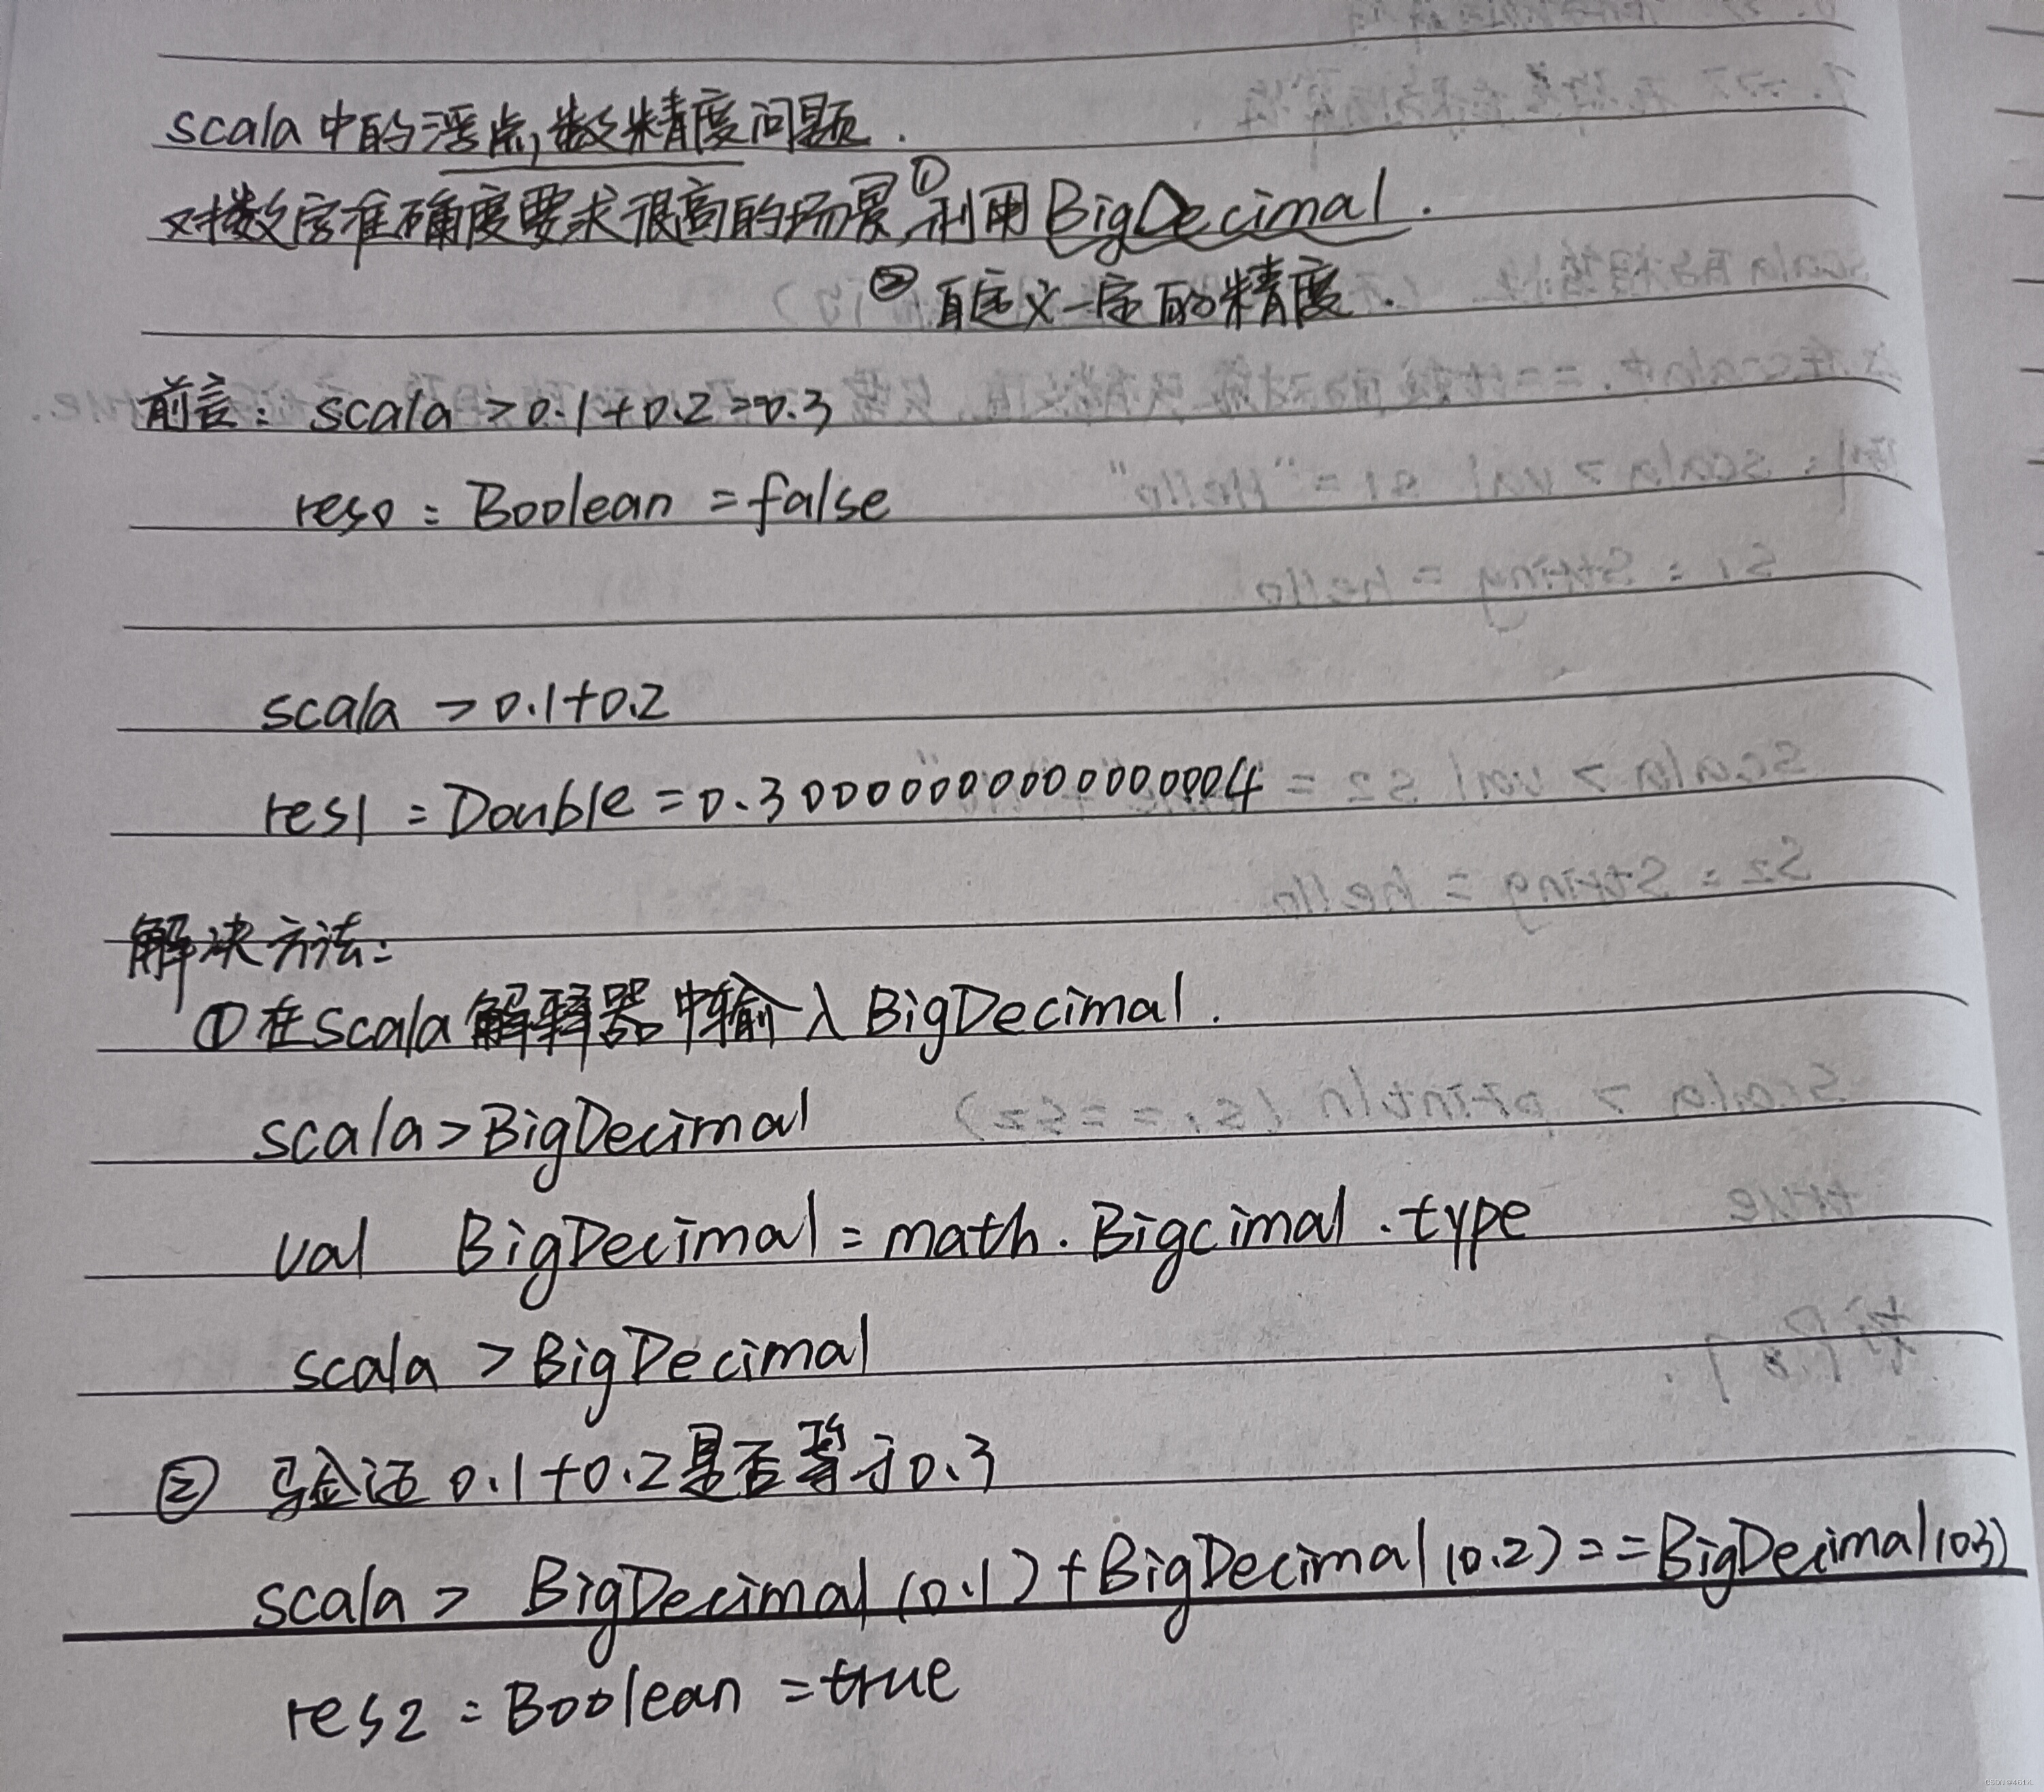 scala中的浮点数精度问题.
对数字准确度要求很高的场景,①利用BigDecimal.
②自定义一定的精度.
前言: scala>0.1+0.2=0.3
res0:Boolean=false
scala>0.1+0.2
res1:Double=0.30000000000000004
解决方法:
①在scala解释器中输入BigDecimal.
scala>BigDecimal
val BigDecimal=math.Bigcimal.type
scala>BigDecimal
② 验证0.1+0.2是否等于0.3
scala> BigDecimal(0.1)+BigDecimal(0.2)==BigDecimal(0.3)
res2:Boolean=true